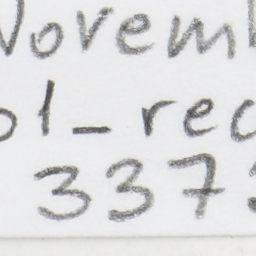 Novem
ol_rec
337